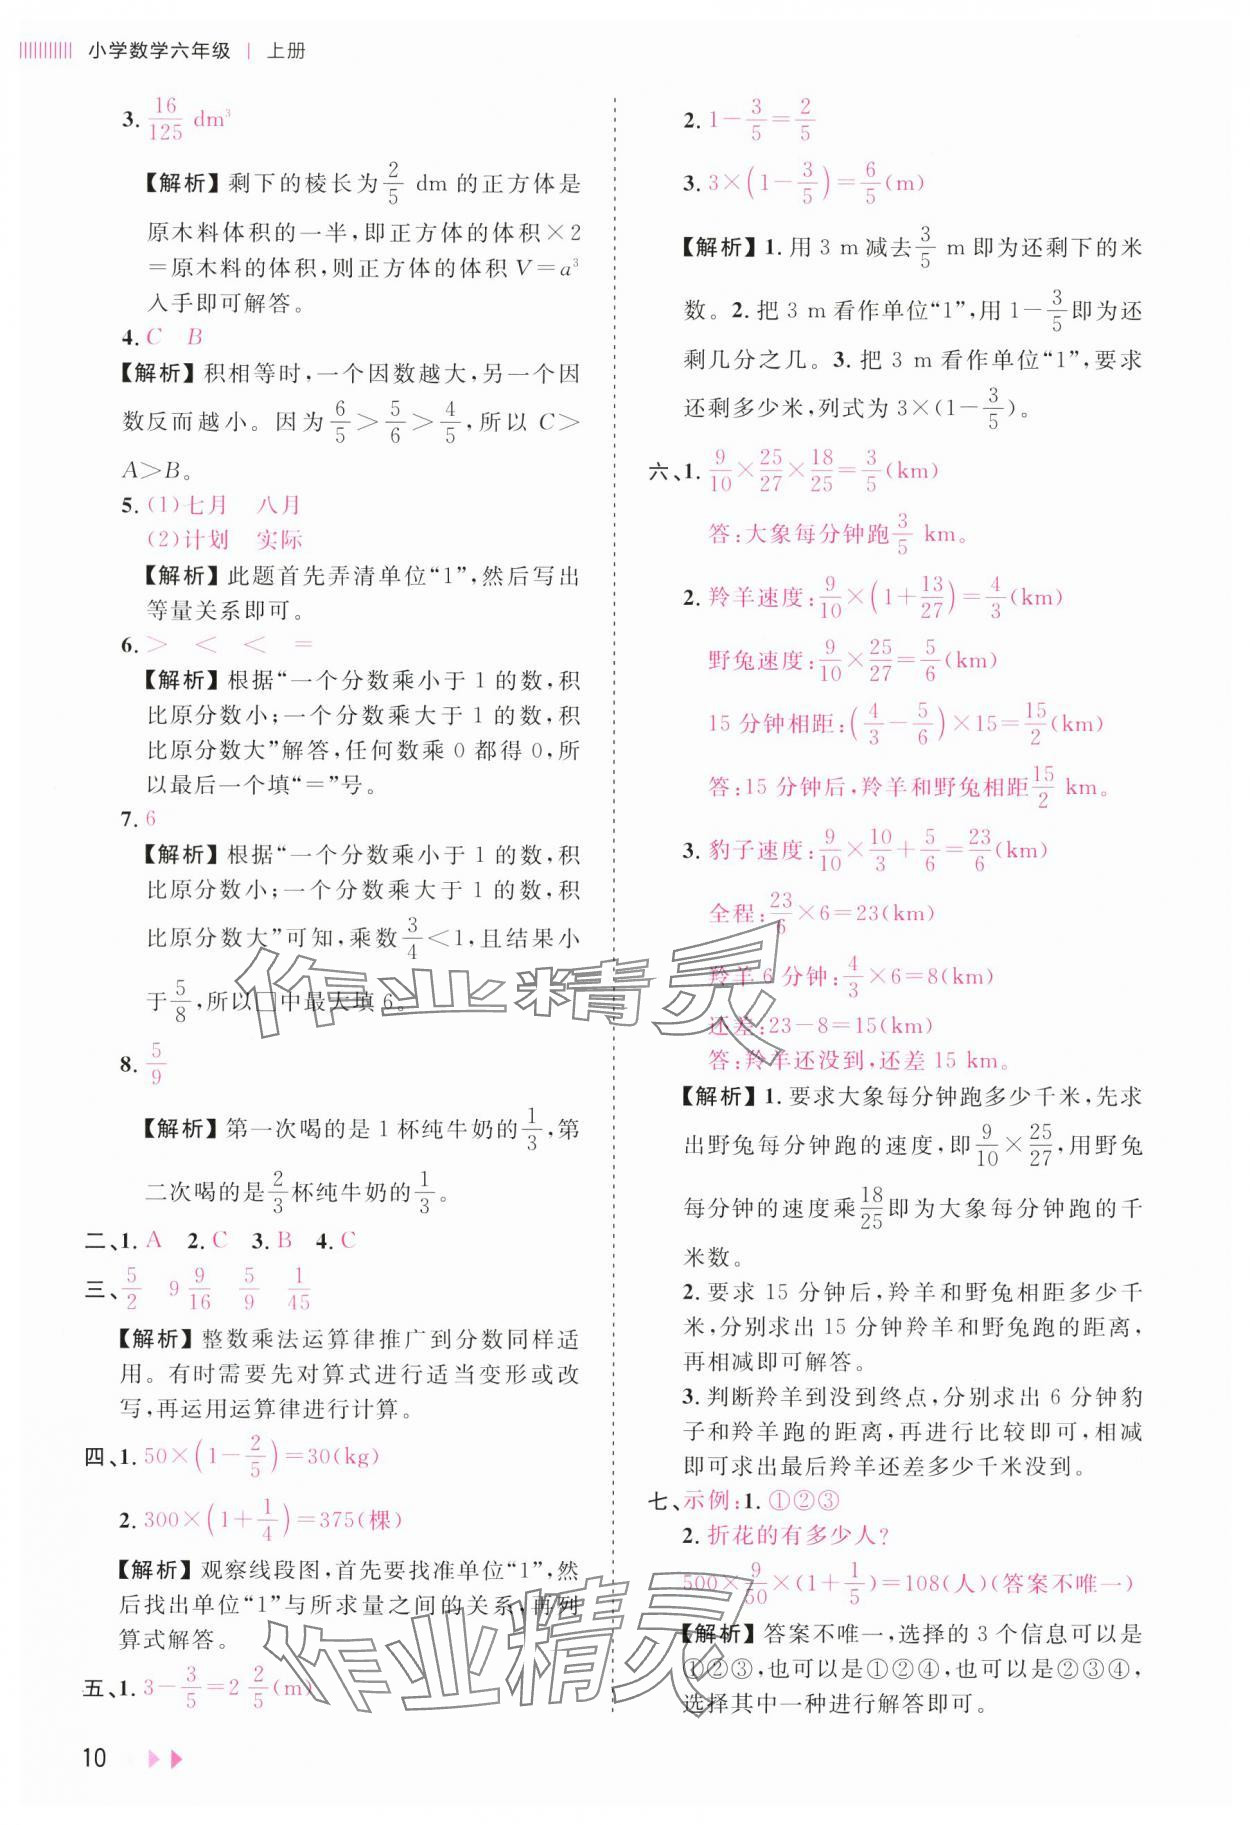 小学数学六年级 | 上册
3. 16/125 dm³
【解析】剩下的棱长为2/5 dm的正方体是
原木料体积的一半,即正方体的体积×2
=原木料的体积,则正方体的体积V=a³
入手即可解答。
4. C B
【解析】积相等时,一个因数越大,另一个因
数反而越小。因为6/5>5/6>4/5,所以C>
A>B。
5. (1)七月 八月
(2)计划 实际
【解析】此题首先弄清单位“1”,然后写出
等量关系即可。
6. > < < =
【解析】根据“一个分数乘小于1的数,积
比原分数小;一个分数乘大于1的数,积
比原分数大”解答,任何数乘0都得0,所
以最后一个填“=”号。
7. 6
【解析】根据“一个分数乘小于1的数,积
比原分数小;一个分数乘大于1的数,积
比原分数大”可知,乘数3/4<1,且结果小
于5/8,所以□中最大填6。
8. 5/9
【解析】第一次喝的是1杯纯牛奶的1/3,第
二次喝的是2/3杯纯牛奶的1/3。
二、1. A 2. C 3. B 4. C
三、5/2 9 9/16 5/9 1/45
【解析】整数乘法运算律推广到分数同样适
用。有时需要先对算式进行适当变形或改
写,再运用运算律进行计算。
四、1. 50×(1-2/5)=30(kg)
2. 300×(1+1/4)=375(棵)
【解析】观察线段图,首先要找准单位“1”,然
后找出单位“1”与所求量之间的关系,再列
算式解答。
五、1. 3-3/5=2 2/5(m)
10
2. 1-3/5=2/5
3. 3×(1-3/5)=6/5(m)
【解析】1. 用3 m减去3/5 m即为还剩下的米
数。2. 把3 m看作单位“1”,用1-3/5即为还
剩几分之几。3. 把3 m看作单位“1”,要求
还剩多少米,列式为3×(1-3/5)。
六、1. 9/10×25/27×18/25=3/5(km)
答:大象每分钟跑3/5 km。
2. 羚羊速度:9/10×(1+13/27)=4/3(km)
野兔速度:9/10×25/27=5/6(km)
15分钟相距:(4/3-5/6)×15=15/2(km)
答:15分钟后,羚羊和野兔相距15/2 km。
3. 豹子速度:9/10×10/3+5/6=23/6(km)
全程:23/6×6=23(km)
羚羊6分钟:4/3×6=8(km)
还差:23-8=15(km)
答:羚羊还没到,还差15 km。
【解析】1. 要求大象每分钟跑多少千米,先求
出野兔每分钟跑的速度,即9/10×25/27,用野兔
每分钟的速度乘18/25即为大象每分钟跑的千
米数。
2. 要求15分钟后,羚羊和野兔相距多少千
米,分别求出15分钟羚羊和野兔跑的距离,
再相减即可解答。
3. 判断羚羊到没到终点,分别求出6分钟豹
子和羚羊跑的距离,再进行比较即可,相减
即可求出最后羚羊还差多少千米没到。
七、示例:1. ①②③
2. 折花的有多少人?
500×9/50×(1+1/5)=108(人)(答案不唯一)
【解析】答案不唯一,选择的3个信息可以是
①②③,也可以是①②④,也可以是②③④,
选择其中一种进行解答即可。
作业精灵
作业精灵